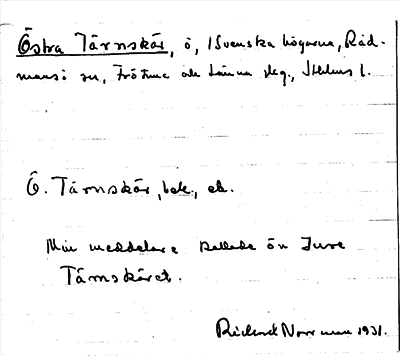 Östra Tärnskär, ö, i Svenska högarna, Råd-
mansö sn, Frötuna och Länna skg., Sthlms l.
Ö. Tärnskär, bek., ek.
Min meddelare kallade ön Jure
Tärnskäret.
Rickard Norrman 1931.